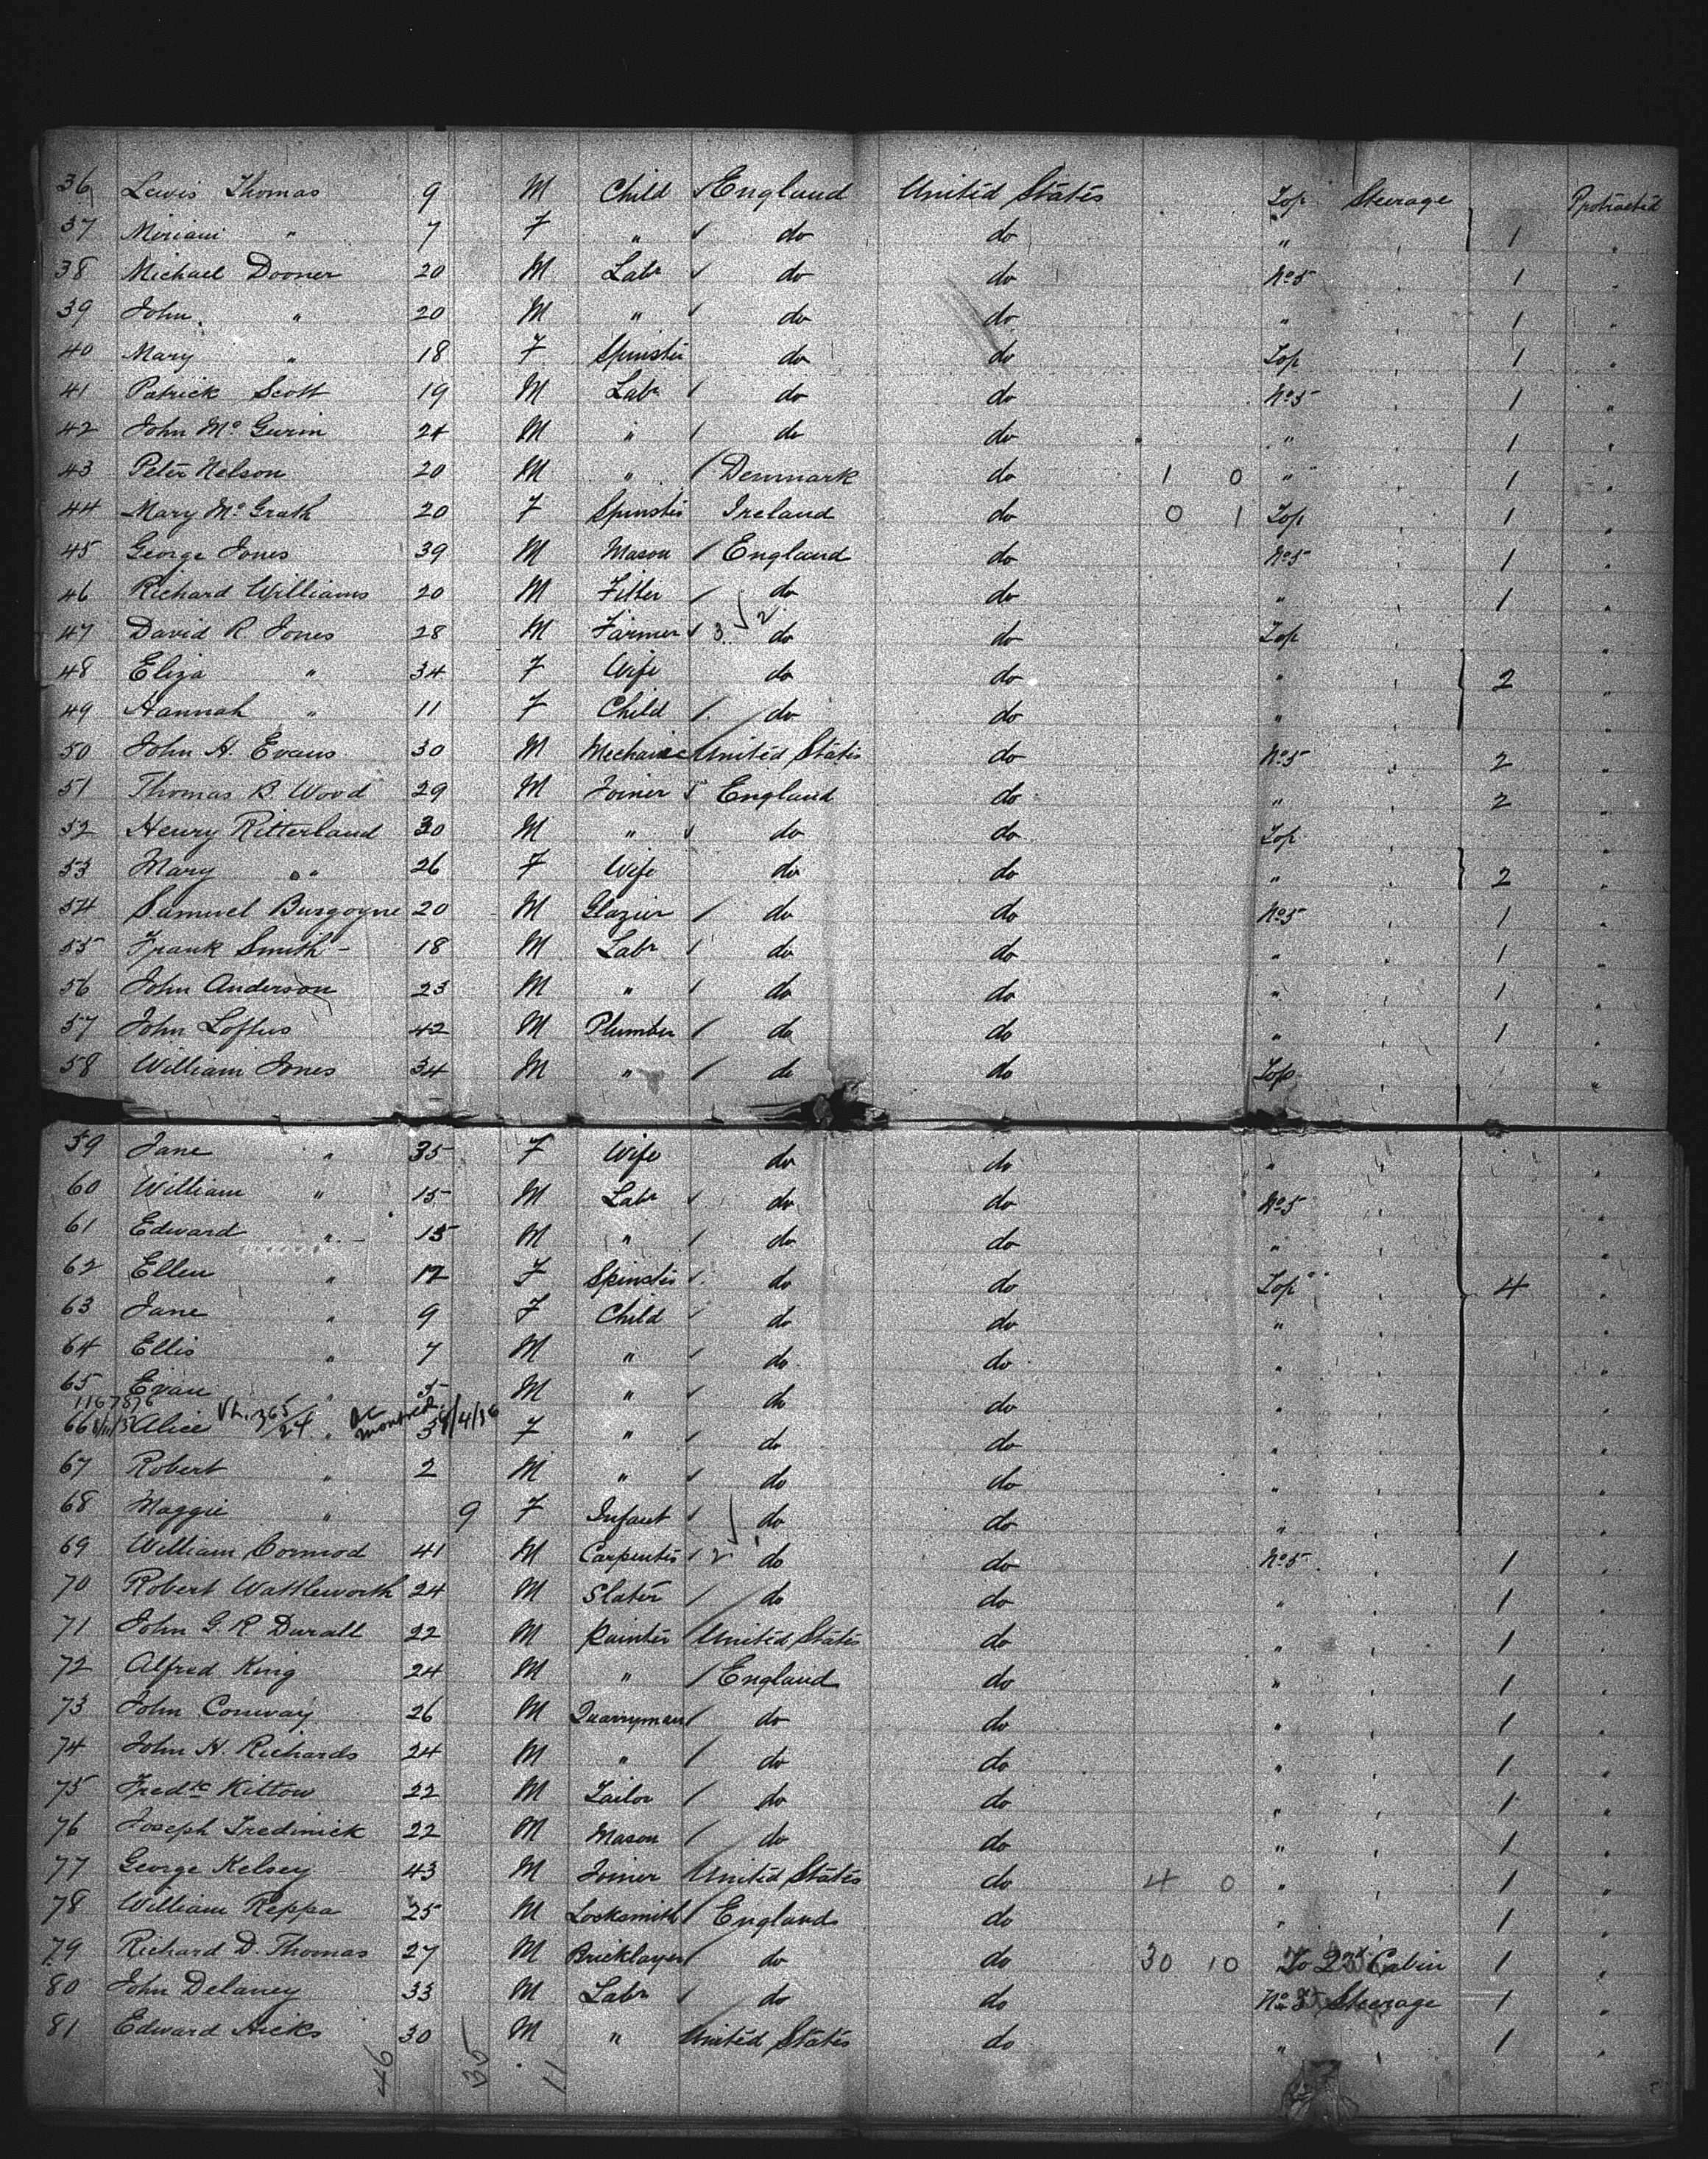 36 Lewis Thomas 9 M Child England United States Top Steerage Protracted
37 Miriam " 7 F " do do " 1 "
38 Michael Dooner 20 M Labr do do No 5 1 "
39 John " 20 M " do do " 1 "
40 Mary " 18 F Spinster do do Top 1 "
41 Patrick Scott 19 M Labr do do No 5 1 "
42 John Mc Gurin 24 M " do do " 1 "
43 Peter Nelson 20 M " Denmark do 1 0 " 1 "
44 Mary Mc Grath 20 F Spinster Ireland do 0 1 Top 1 "
45 George Jones 39 M Mason England do No 5 1 "
46 Richard Williams 20 M Fitter do do " 1 "
47 David R Jones 28 M Farmer 3 2 do do Top "
48 Eliza " 34 F Wife do do " 2 "
49 Hannah " 11 F Child do do " "
50 John H. Evans 30 M Mechanic United States do No 5 2 "
51 Thomas B Wood 29 M Joiner England do " 2 "
52 Henry Ritterland 30 M " do do Top "
53 Mary " 26 F Wife do do " 2 "
54 Samuel Burgoyne 20 M Glazier do do No 5 1 "
55 Frank Smith 18 M Labr do do " 1 "
56 John Anderson 23 M " do do " 1 "
57 John Loftus 42 M Plumber do do " 1 "
58 William Jones 34 M " do do Top "
59 Jane " 35 F Wife do do " "
60 William " 15 M Labr do do No 5 "
61 Edward " 15 M " do do " "
62 Ellen " 12 F Spinster do do Top 4 "
63 Jane " 9 F Child do do " "
64 Ellis " 7 M " do do " "
65 Evan " 5 M " do do " "
1167876
66 Alice VL. 365/24 Montreal 4/36 " 3 F " do do " "
67 Robert " 2 M " do do " "
68 Maggie " 9 F Infant do do " "
69 William Cormod 41 M Carpenter 2 do do No 5 1 "
70 Robert Wattleworth 24 M Slater do do " 1 "
71 John G. R Durall 22 M Painter United States do " 1 "
72 Alfred King 24 M " England do " 1 "
73 John Conway 26 M Quarryman do do " 1 "
74 John H. Richards 24 M " do do " 1 "
75 Fredk Kittow 22 M Tailor do do " 1 "
76 Joseph Tredinick 22 M Mason do do " 1 "
77 George Kelsey 43 M Joiner United States do 4 0 " 1 "
78 William Reppa 25 M Locksmith England do " 1 "
79 Richard D. Thomas 27 M Bricklayer do do 30 10 To 2nd Cabin 1 "
80 John Delaney 33 M Labr do do No 5 Steerage 1 "
81 Edward Hicks 30 M " United States do " 1 "
46 35 11